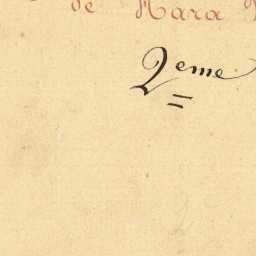 de Hara
2eme